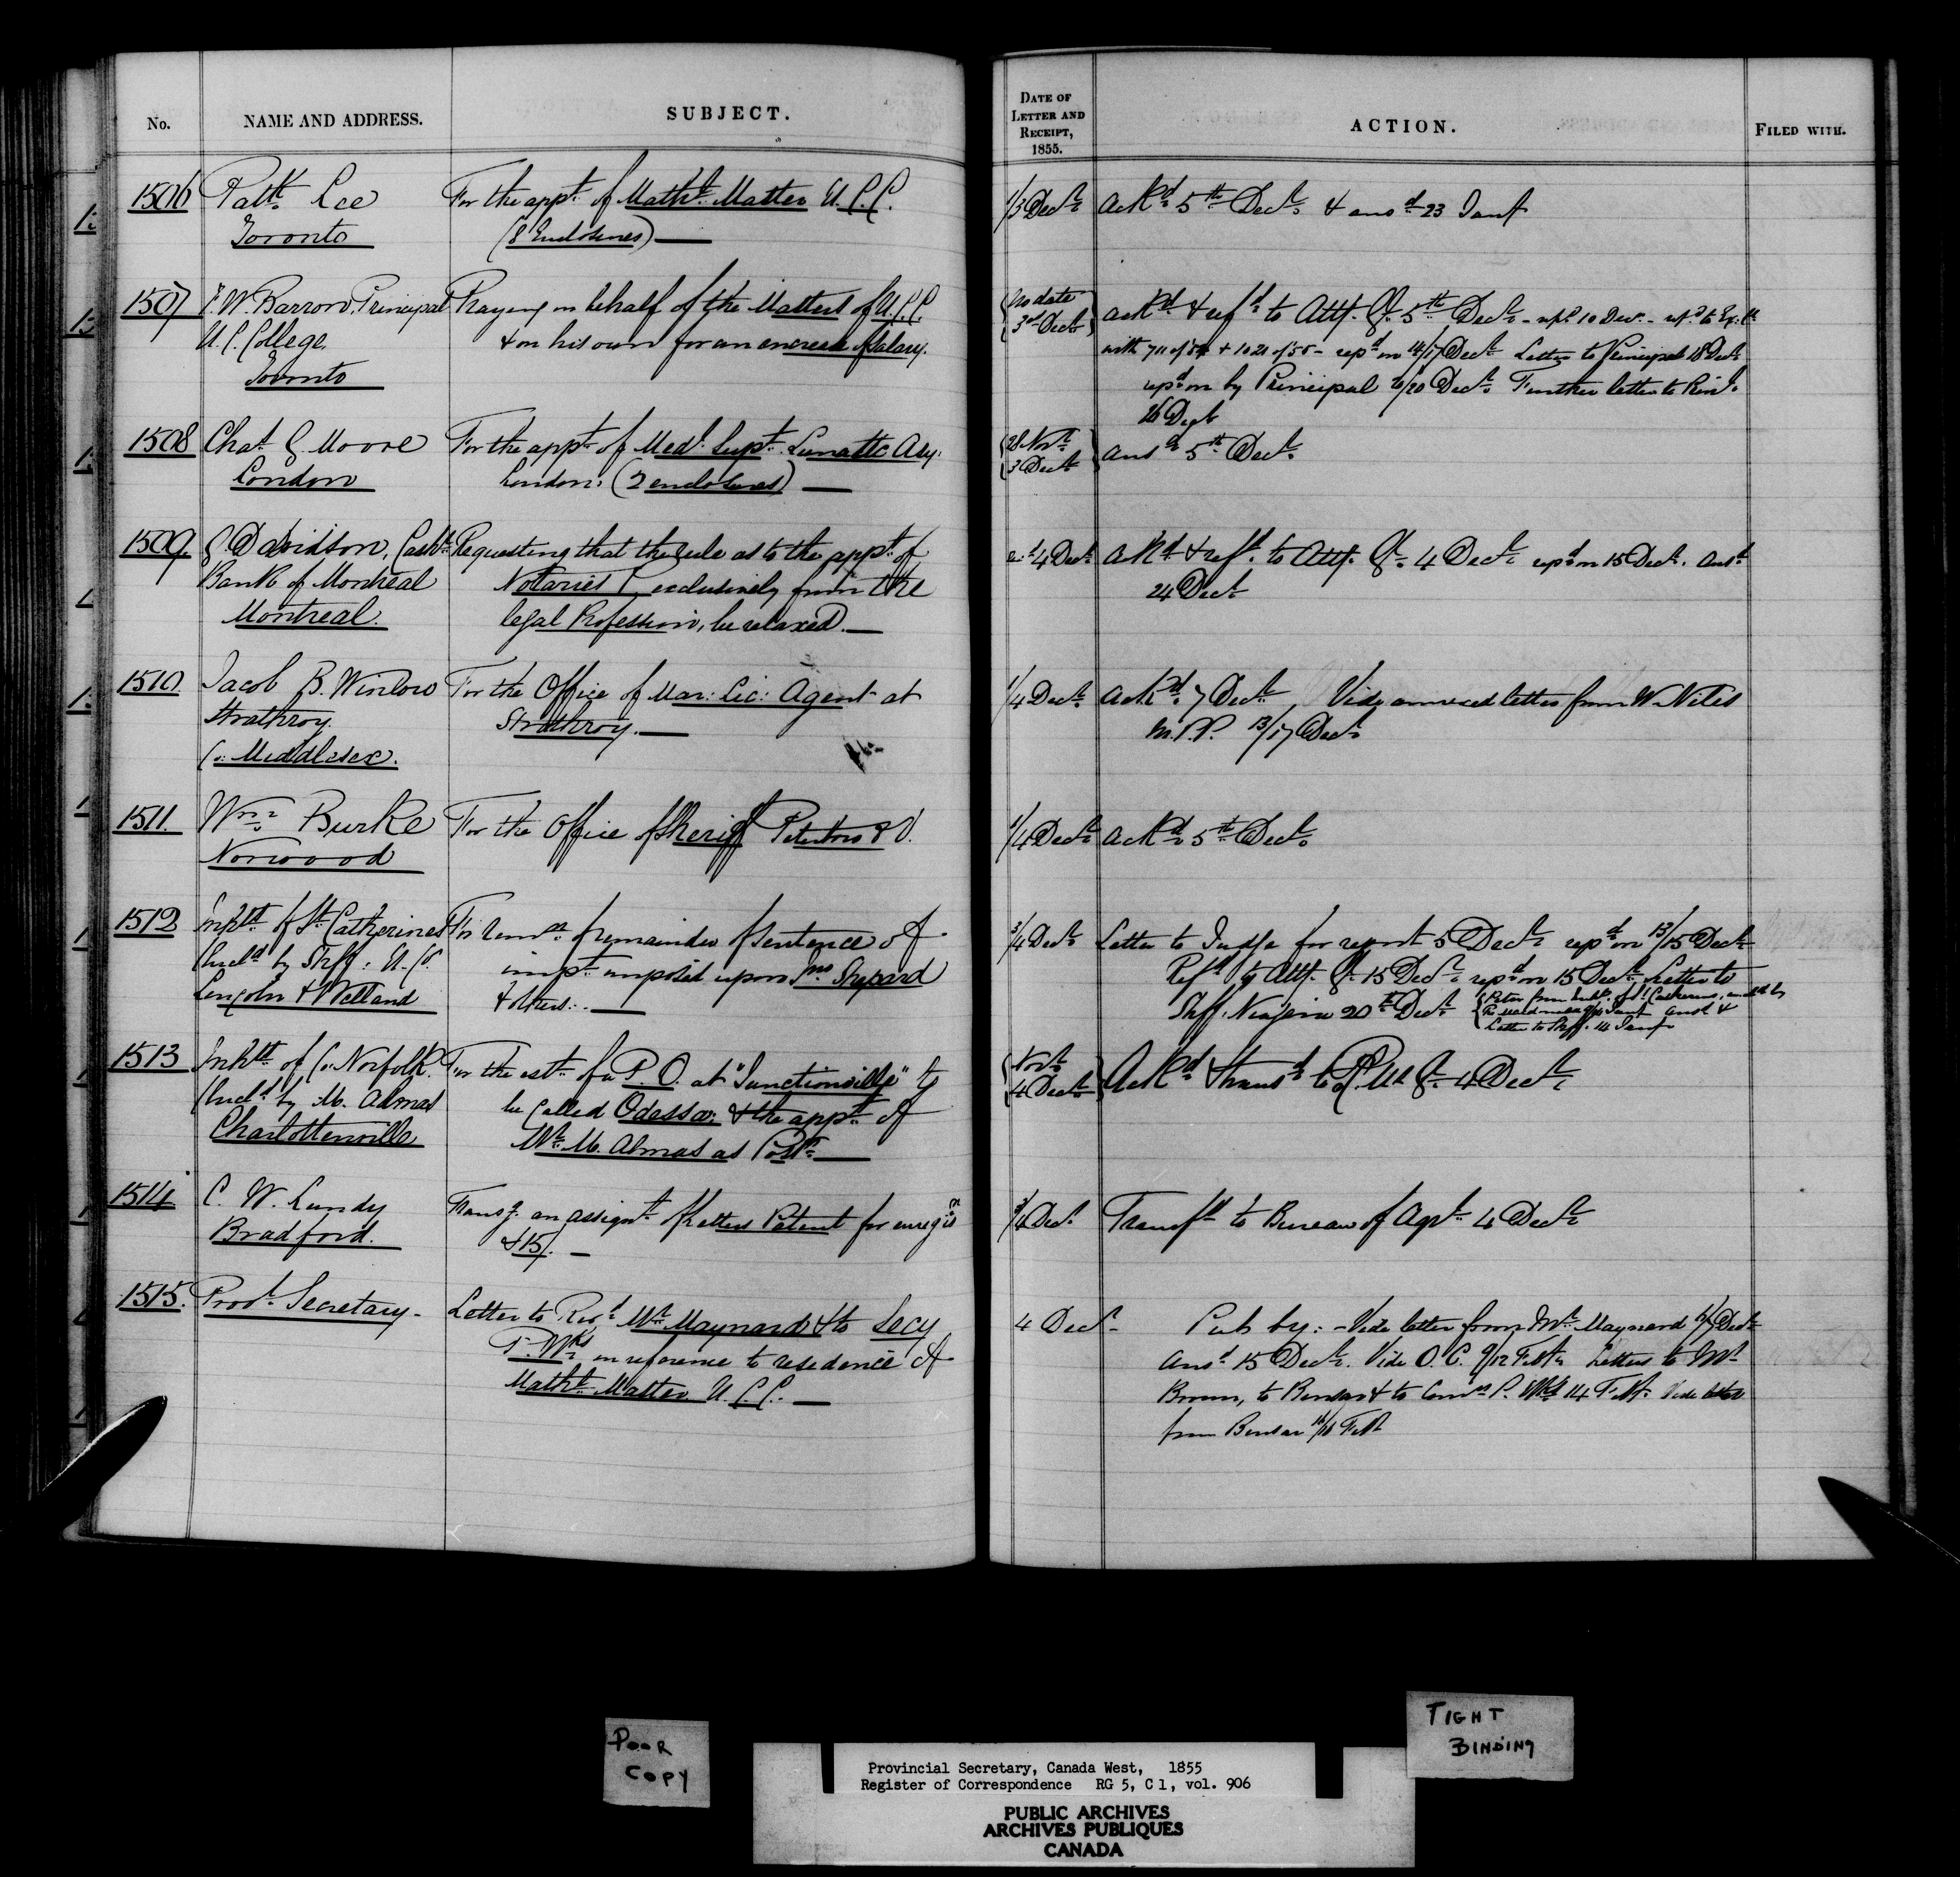 No. NAME AND ADDRESS. SUBJECT.
DATE OF LETTER AND RECEIPT, 1855. ACTION. FILED WITH.
1506 Patk Lee For the appt. of Mathl. Master U.C.C. 1/3 Decr ackd 5th Decr & ansd 23 Jany
Toronto (8 Enclosures)
1507 F.W. Barron, Principal Praying on behalf of the Masters of U.C.C. No date ackd & refd to Atty. Gl. 5th Decr - repd. 10 Decr. - refd to Ex. C.
U.C. College & on his own for an encrease of Salary. 3d Decr with 711 of 54 + 1021 of 55 - repd on 14/17 Decr Letter to Principal 18 Decr
Toronto repd on by Principal 20 Decr Further letter to
26 Decr
1508 Chas G. Moore For the appt. of Medl. Supt. Lunatic Asy. 28 Novr ansd 5th Decr
London London. (2 enclosures) 3 Decr
1509 Davidson, Cashr Requesting that the rule as to the appt. of 4 Decr ackd & refd. to Atty. Gl. 4 Decr repd on 15 Decr. Ansd
Bank of Montreal Notaries P. exclusively from the 24 Decr
Montreal. legal Profession, be relaxed.
1510. Jacob B. Winlow For the Office of Mar: Lic: Agent at 1/4 Decr ackd 7 Decr Vide annexed letter from W. Niles
Strathroy. Strathroy. M.P.P. 13/17 Decr
Co: Middlesex.
1511. Wm Burke For the Office of Sheriff Peterboro & V. 1/4 Decr ackd 5th Decr
Norwood
1512 Inhbts of St. Catherines For remn of remainder of sentence of 3/4 Decr Letter to Judge for report 5 Decr repd on 13/15 Decr
(Encld by Shff: U. Co. impt. imposed upon Jno. Shepard Refd to Atty. Gl. 15 Decr repd on 15 Decr Letter to
Lincoln & Welland & others. Shff. Niagara 20th Decr
ansd &
Letter to Shff. 14 Jany
1513 Inhbts of Co. Norfolk. For the estt. of a P.O. at "Junctionville" to Novr Ackd & transd to P.M. Gl. 4 Decr
(Encld by M. Almas be called Odessa: & the appt. of 4 Decr
Charlotteville Mr. M. Almas as Postr.
1514 C. W. Lundy Transg. an assignt. of Letters Patent for enregisn 3/4 Decr Transfd to Bureau of Agr. 4 Decr
Bradford. & 15/. —
1515. Provl. Secretary - Letter to Revd. Mr. Maynard & to Secy 4 Decr Put by: - Vide letter from Mr. Maynard 6/7 Decr
P. Wks in reference to residence of Ansd 15 Decr. Vide O.C. 9/12 Feby. Letters to Mr
Mathl. Master U.C.C. Brown, to Bursar & to Comrs P. Wks 14 Feby. Vide letter
from Bursar 16 Feby
POOR COPY
TIGHT BINDING
Provincial Secretary, Canada West, 1855
Register of Correspondence RG 5, C 1, vol. 906
PUBLIC ARCHIVES
ARCHIVES PUBLIQUES
CANADA